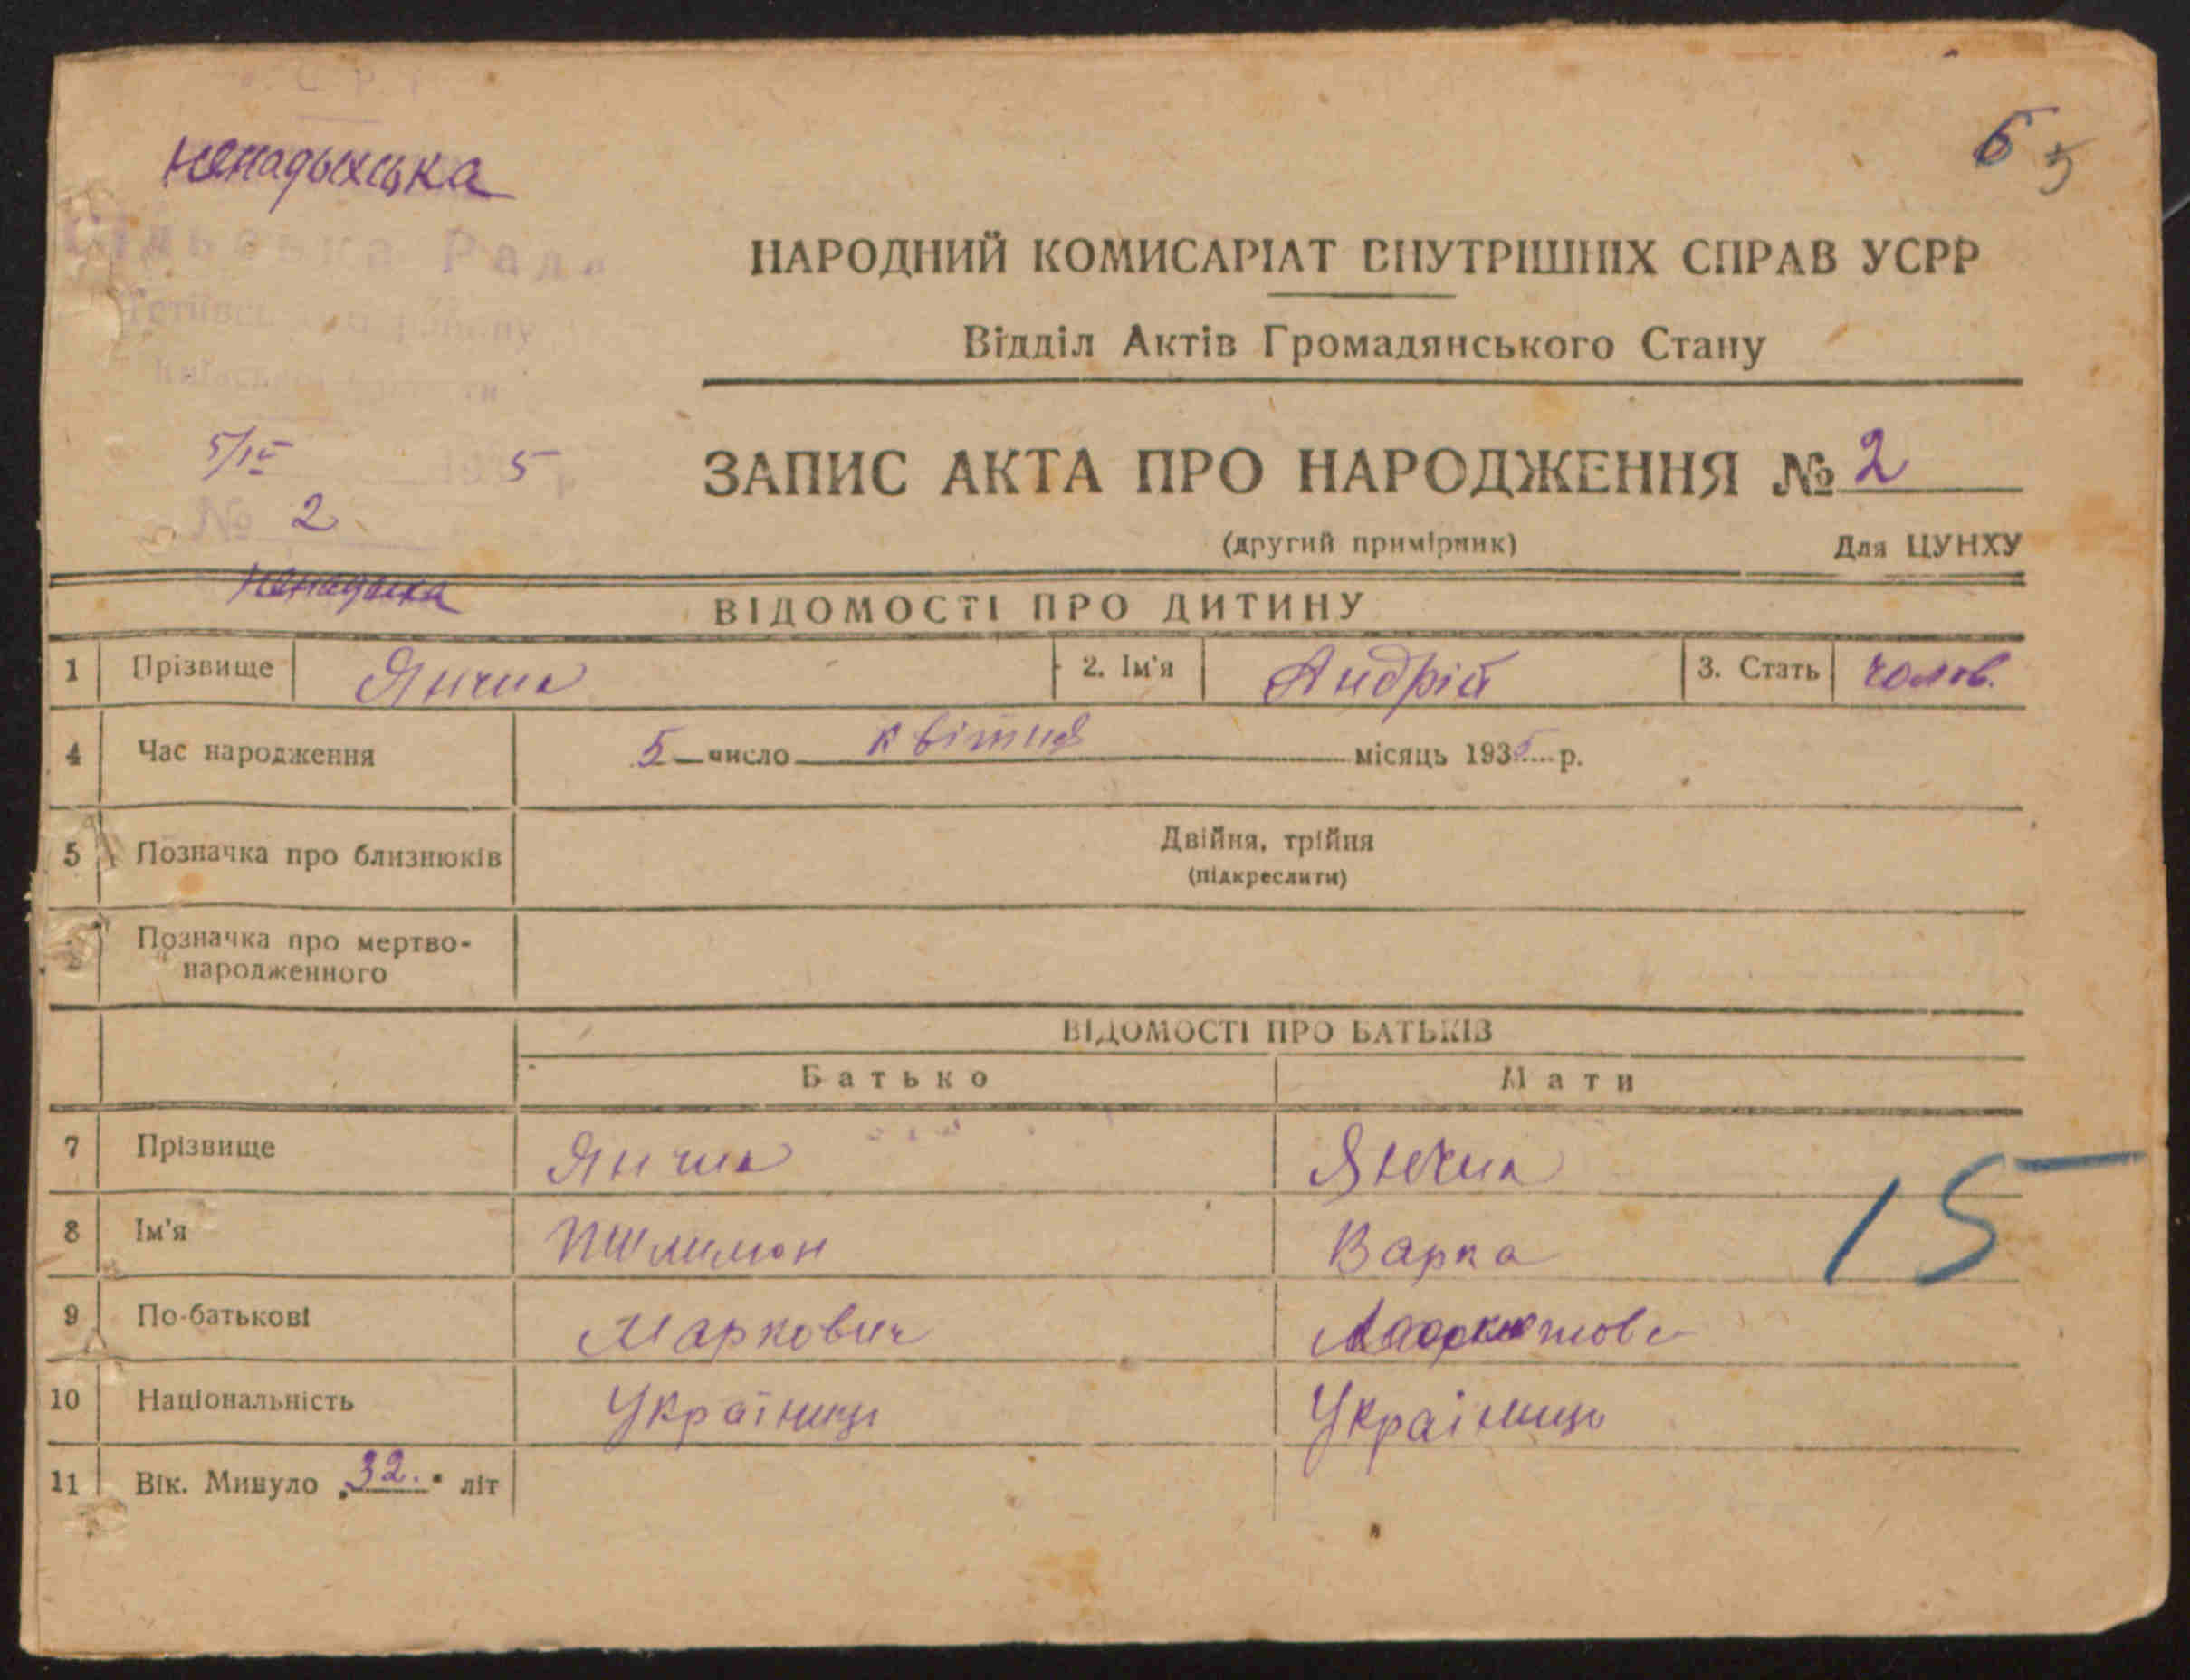 Ненадыхська
6 5
Сільська Рада
НАРОДНИЙ КОМИСАРІАТ ВНУТРІШНІХ СПРАВ УСРР
Відділ Актів Громадянського Стану
5/IV 1935 р.
ЗАПИС АКТА ПРО НАРОДЖЕННЯ № 2
№ 2
(другий примірник) Для ЦУНХУ
ВІДОМОСТІ ПРО ДИТИНУ
1 Прізвище Янчик 2. Ім'я Андрій 3. Стать чолов.
4 Час народження 5 число квітня місяць 1935 р.
5 Позначка про близнюків Двійня, трійня
(підкреслити)
Позначка про мертво-
народженного
ВІДОМОСТІ ПРО БАТЬКІВ
Батько Мати
7 Прізвище Янчик Янчик
8 Ім'я Варка
9 По-батькові Маркович
10 Національність Українці Українці
15
11 Вік. Минуло „32." літ